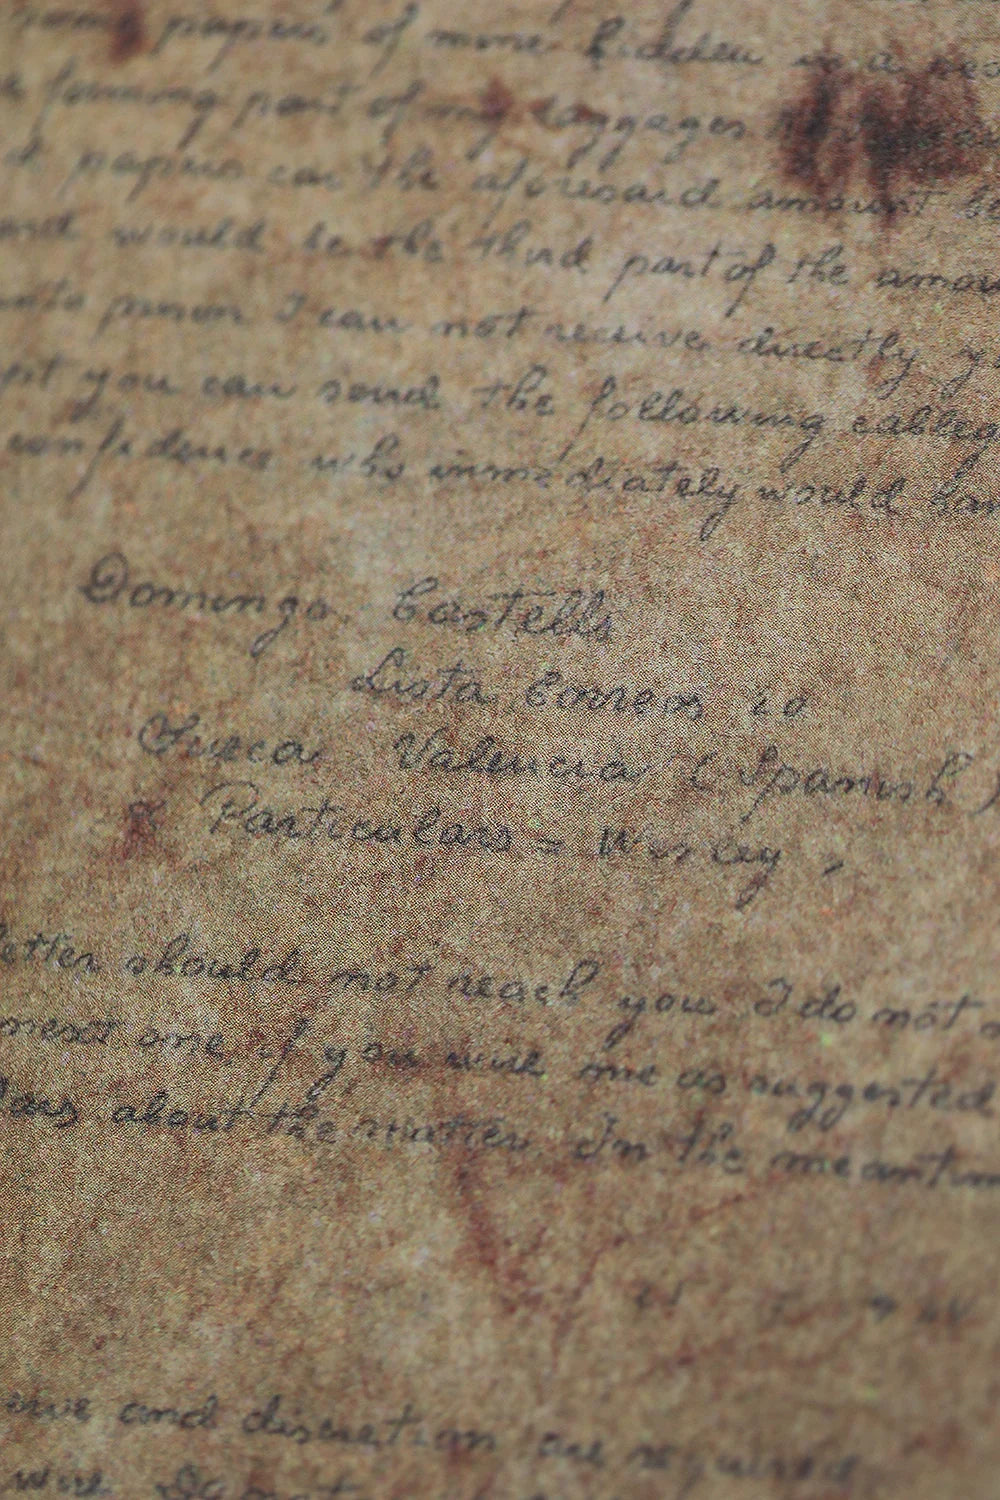 some papers of mine hidden in a
forming part of my laggages
papers can the aforesaid amount be
and would be the third part of the amou
person I can not receive directly y
you can send the following cableg
confidence who immediately would
Domingo Castells
Lista Correos 20
Sueca Valencia (Spanish)
Particulars =
etter should not reach you I do not a
next one if you wire me as suggested
lars about the matter In the meantim
and discretion are required
wire Do not